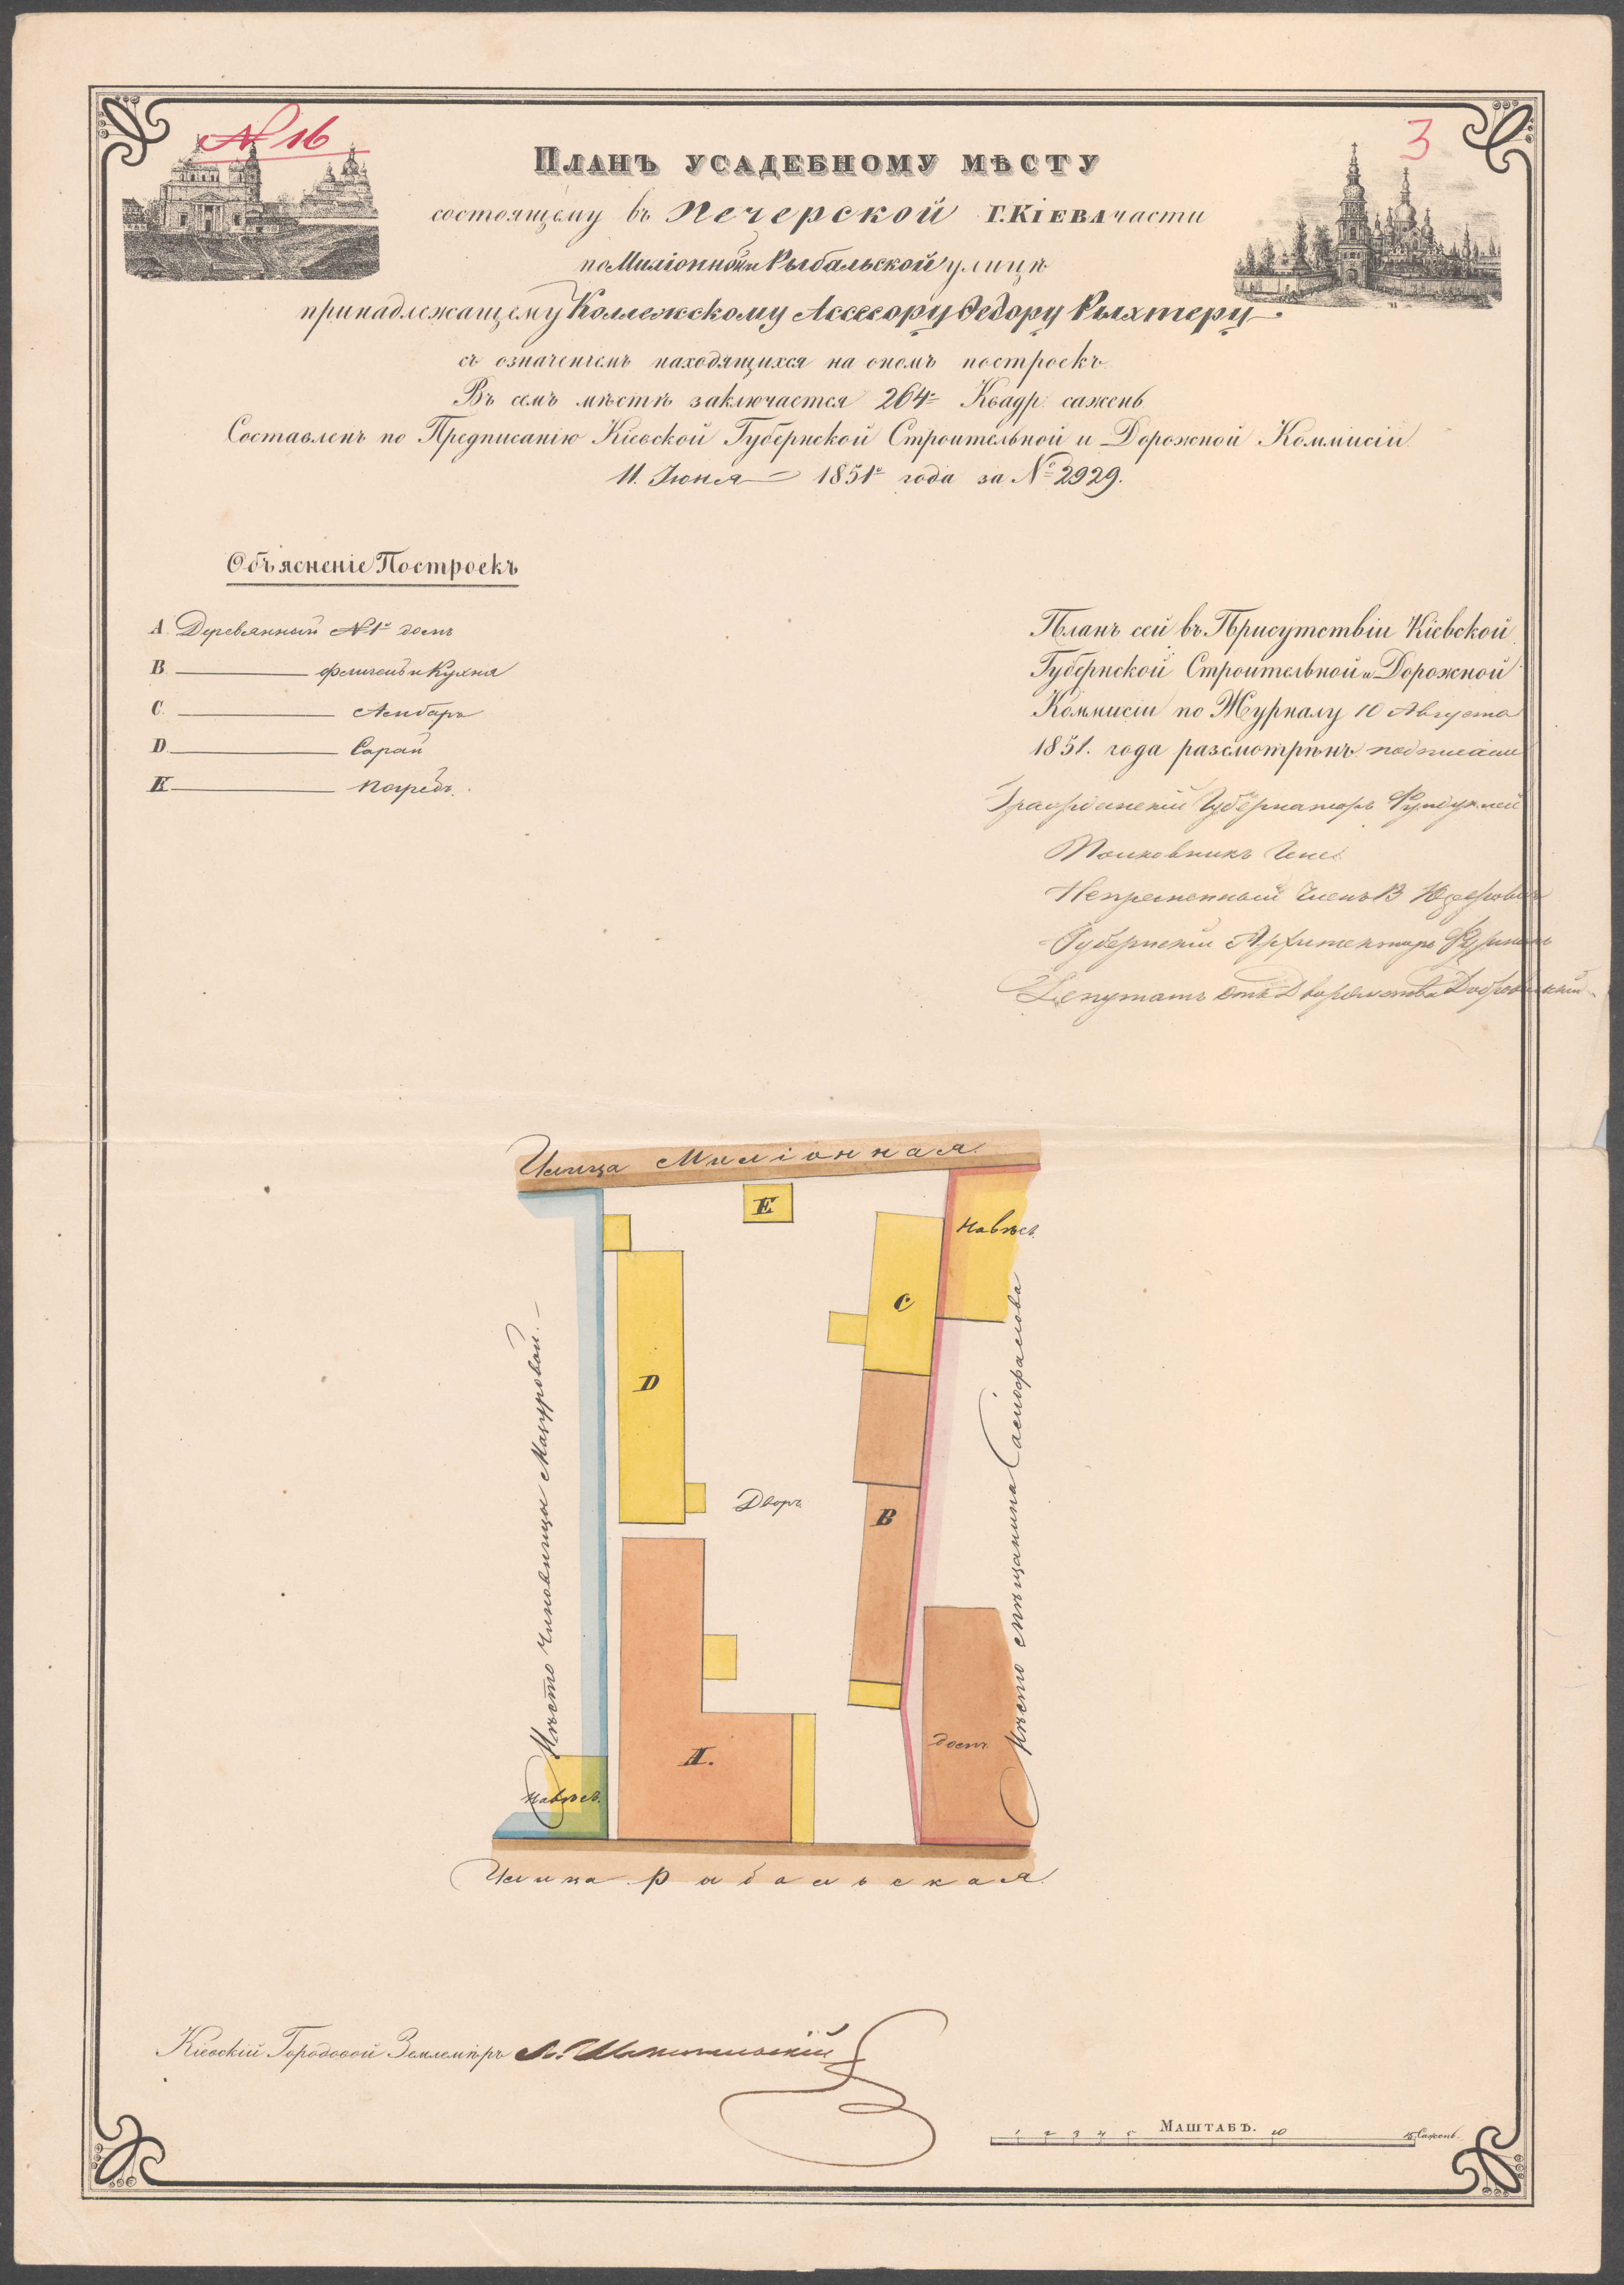 № 16
3
Планъ усадебному мѣсту
состоящему въ Печерской г. Кіева части
по Миліонной и Рыбальской улицѣ
принадлежащему Коллежскому Ассесору Федору Рыхтеру
съ означеніемъ находящихся на ономъ построекъ.
Въ семъ мѣстѣ заключается 264 Квадр. сажень
Составленъ по Предписанію Кіевской Губернской Строительной и Дорожной Коммисіи
11. Іюня 1851 года за № 2929.
Объясненіе Построекъ
A. Деревянный №1й домъ
B. флигель и Кухня
C. Амбаръ
D. Сарай
E. Погребъ.
Планъ сей въ Присутствіи Кіевской
Губернской Строительной и Дорожной
Коммисіи по Журналу 10 Августа
1851. года разсмотрѣнъ подписали
Гражданскій Губернаторъ Фундуклей
Полковникъ
Непременный Членъ В
Губернскій Архитекторъ
Депутатъ отъ Дворянства Добровольскій
Улица Миліонная.
E
Навѣсъ.
C
D
Дворъ
B
Мѣсто Чиновницы Мазуровой.
Мѣсто мѣщанина
A.
домъ
Навѣсъ.
Улица Рыбальская.
Кіевскій Городовой Землемѣръ
Масштабъ.
1 2 3 4 5 10 15 Сажень.